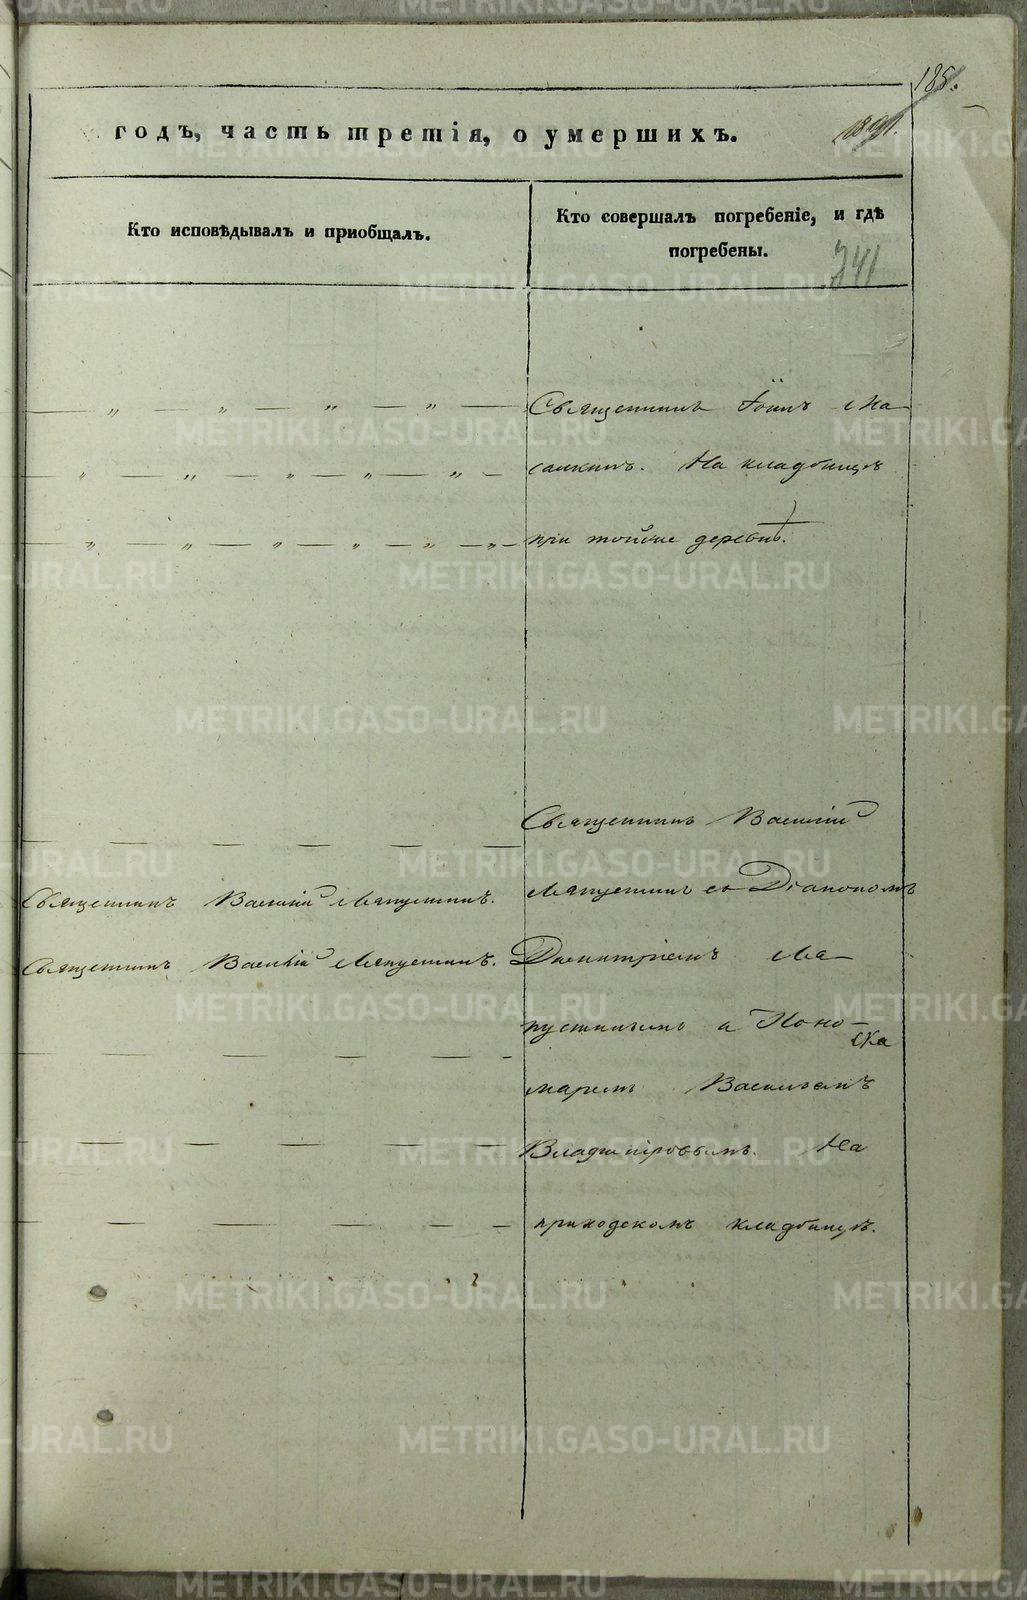 185.
годъ, часть третія, о умершихъ.
Кто исповѣдывалъ и пріобщалъ.
Кто совершалъ погребеніе, и гдѣ
погребены.
741
Священникъ Іоаннъ
На кладбищѣ
при тойже деревнѣ.
Священникъ Василій
Священникъ Василій Мапустинъ.
Мапустинъ съ Діакономъ
Священникъ Василій Мапустинъ.
Димитріемъ Ма-
пустинымъ и Поно-
маремъ Васильемъ
Владиміровымъ. На
приходскомъ кладбищѣ.
METRIKI.GASO-URAL.RU